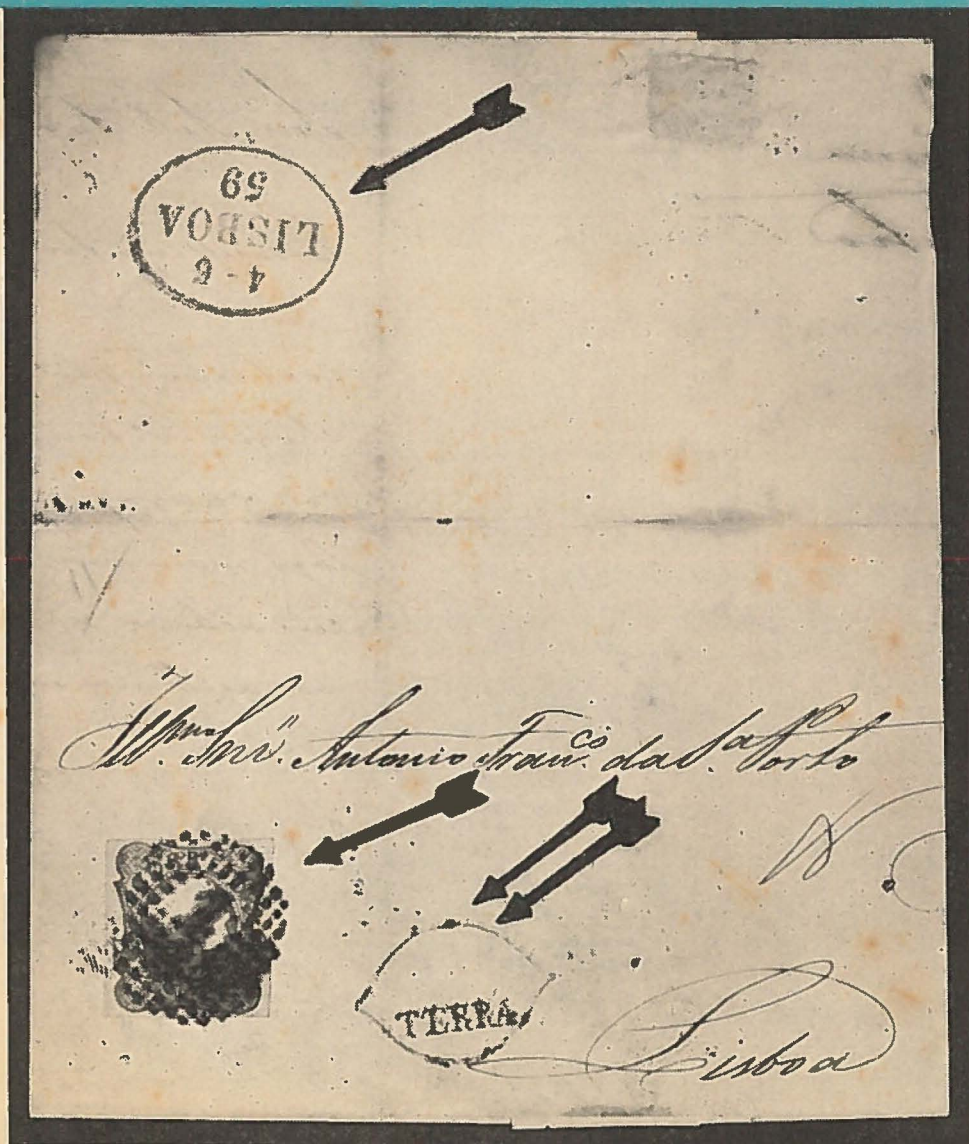 4 - 6
LISBOA
59
Illmo. Snr. Antonio Franco. da Sa. Porto
TERRA
Lisboa